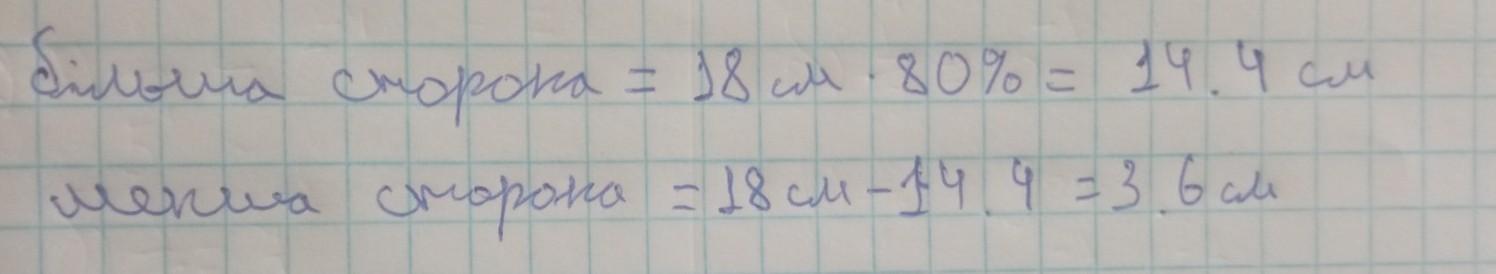 більша сторона = 18 см · 80% = 14.4 см
менша сторона = 18 см - 14.4 = 3.6 см